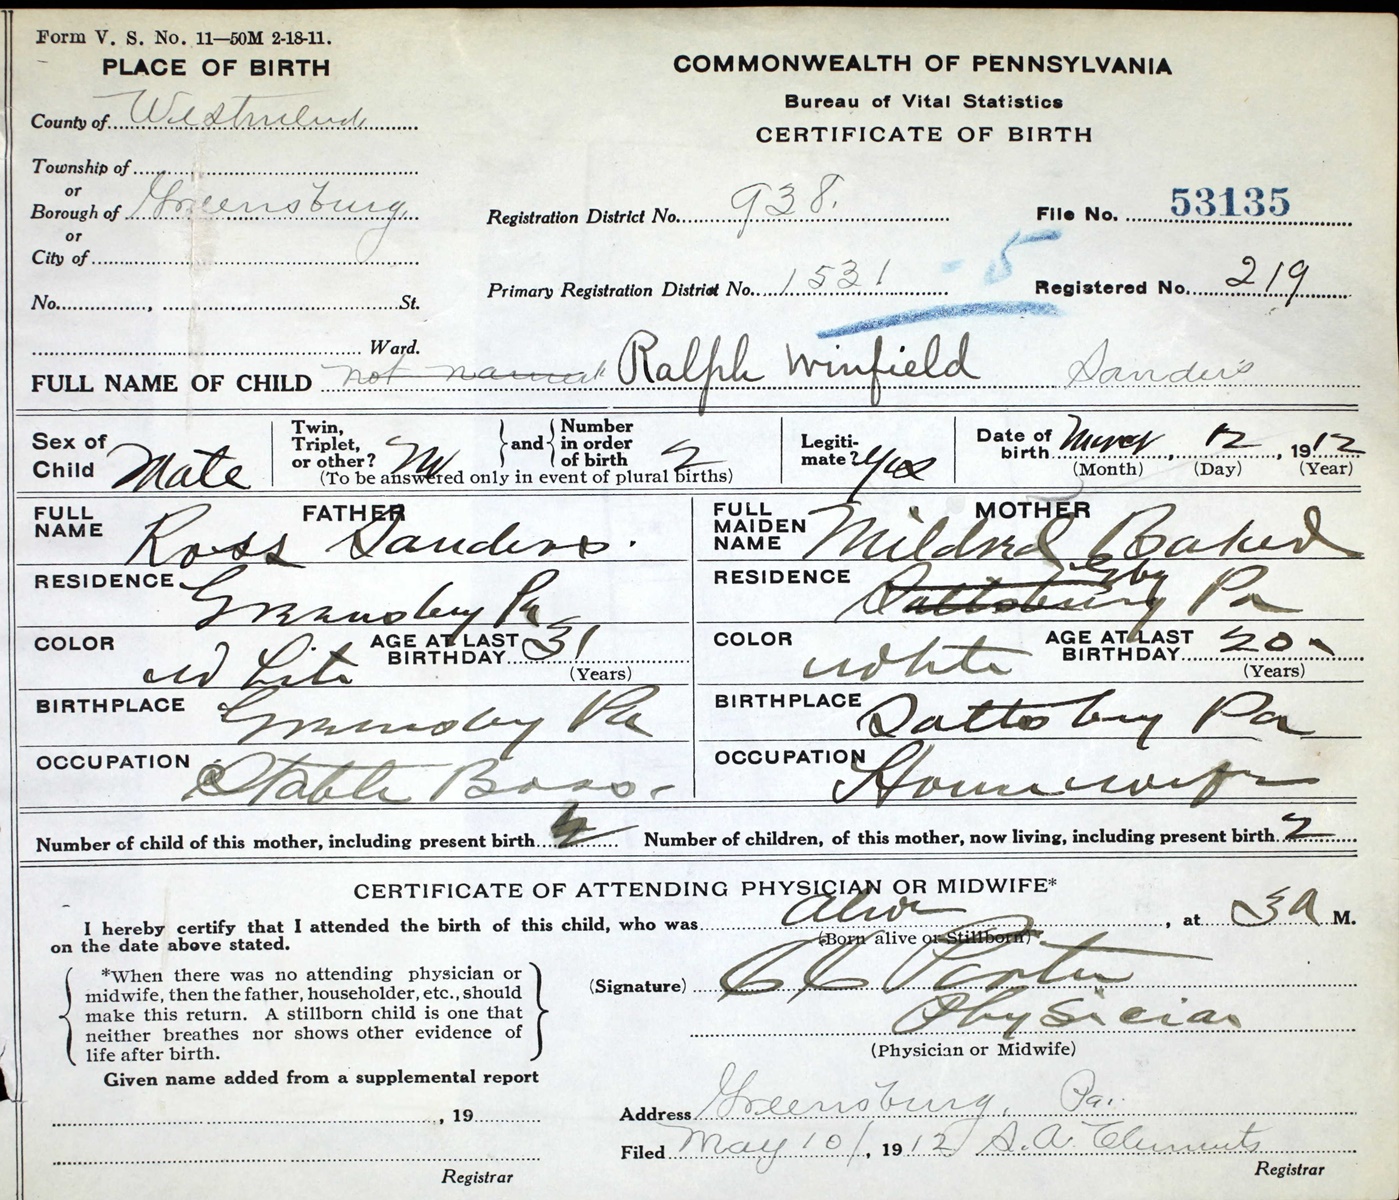 Form V. S. No. 11—50M 2-18-11.
PLACE OF BIRTH
County of Westmland
Township of
or
Borough of Greensburg
or
City of
No. , St.
Ward.
COMMONWEALTH OF PENNSYLVANIA
Bureau of Vital Statistics
CERTIFICATE OF BIRTH
Registration District No. 938.
File No. 53135
Primary Registration District No. 1531 - 5
Registered No. 219
FULL NAME OF CHILD not named Ralph Winfield Sanders
Sex of Child Male
Twin, Triplet, or other? and Number in order of birth 2
(To be answered only in event of plural births)
Legitimate? Yes
Date of birth , 12 , 1912
(Month) (Day) (Year)
FATHER
FULL NAME Ross Sanders.
RESIDENCE Greensburg Pa
COLOR White AGE AT LAST BIRTHDAY 31
(Years)
BIRTHPLACE Greensburg Pa
OCCUPATION Stable Boss.
MOTHER
FULL MAIDEN NAME Mildred Baker
RESIDENCE Saltsburg Gbg Pa
COLOR White AGE AT LAST BIRTHDAY 20
(Years)
BIRTHPLACE Saltsburg Pa
OCCUPATION Housewife
Number of child of this mother, including present birth Number of children, of this mother, now living, including present birth. 2
CERTIFICATE OF ATTENDING PHYSICIAN OR MIDWIFE*
I hereby certify that I attended the birth of this child, who was alive , at 3 A M.
on the date above stated.
(Born alive or Stillborn)
*When there was no attending physician or
midwife, then the father, householder, etc., should
make this return. A stillborn child is one that
neither breathes nor shows other evidence of
life after birth.
(Signature) Porter
Physician
(Physician or Midwife)
Given name added from a supplemental report
, 19
Registrar
Address Greensburg, Pa.
Filed May 10, 1912 S. A. Clements
Registrar